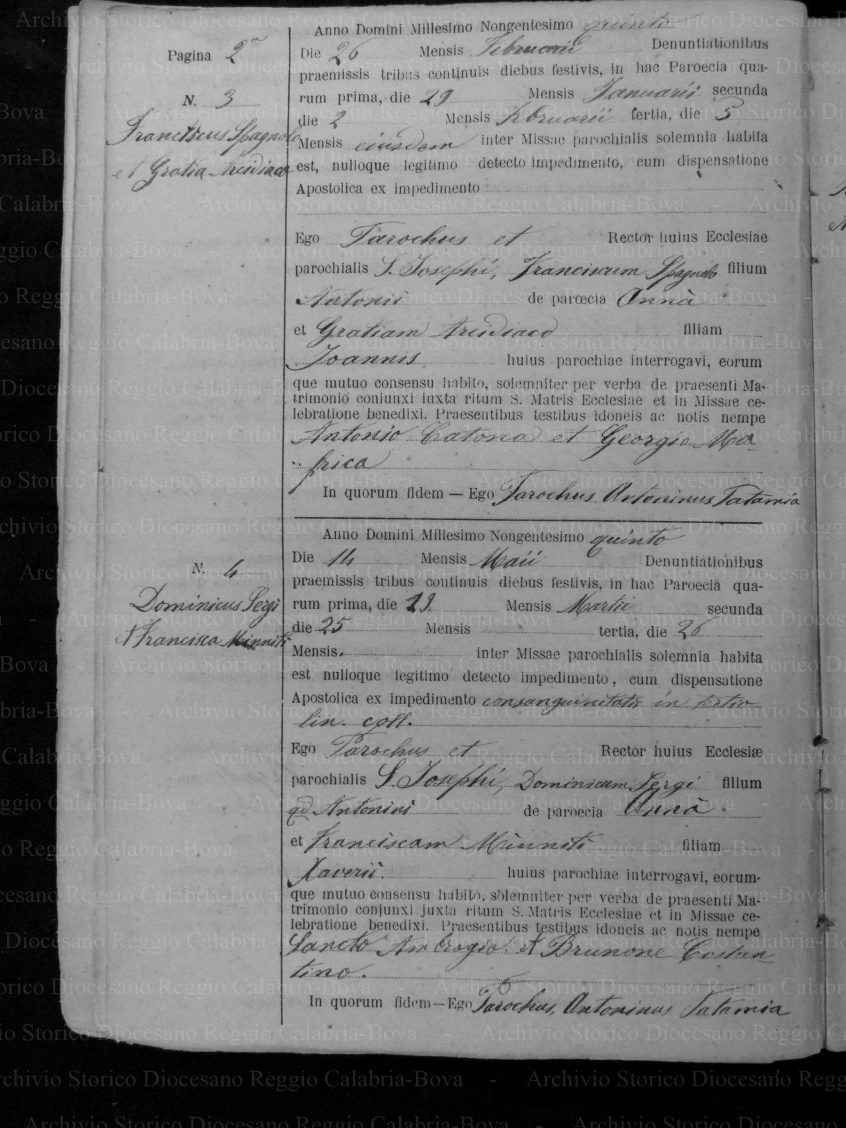 Pagina 2ª
N. 3
Franciscus Spagnolo
et Gratia Arcidiaco
Anno Domini Millesimo Nongentesimo quinto
Die 26 Mensis Februarii Denuntiationibus
praemissis tribus continuis diebus festivis, in hac Paroecia qua-
rum prima, die 29 Mensis Januarii secunda
die 2 Mensis Februarii tertia, die 5
Mensis eiusdem inter Missae parochialis solemnia habita
est, nulloque legitimo detecto impedimento, cum dispensatione
Apostolica ex impedimento
Ego Parochus et Rector huius Ecclesiae
parochialis S. Josephi, Franciscum Spagnolo filium
Antonii de paroecia Annà
et Gratiam Arcidiaco filiam
Joannis huius parochiae interrogavi, eorum
que mutuo consensu habito, solemniter per verba de praesenti Ma-
trimonio coniunxi iuxta ritum S. Matris Ecclesiae et in Missae ce-
lebratione benedixi. Praesentibus testibus idoneis ac notis nempe
Antonio Catona et Georgio Ma-
frica
In quorum fidem — Ego Parochus Antoninus Tatamia
N. 4
Dominicus Sergi
et Francisca Minniti
Anno Domini Millesimo Nongentesimo quinto
Die 14 Mensis Maii Denuntiationibus
praemissis tribus continuis diebus festivis, in hac Paroecia qua-
rum prima, die 19 Mensis Martii secunda
die 25 Mensis tertia, die 26
Mensis inter Missae parochialis solemnia habita
est nulloque legitimo detecto impedimento, cum dispensatione
Apostolica ex impedimento consanguinitatis in tertio
lin. coll.
Ego Parochus et Rector huius Ecclesiæ
parochialis S. Josephi, Dominicum Sergi filium
qd Antonini de paroecia Annà
et Franciscam Minniti filiam
Xaverii. huius parochiae interrogavi, eorum-
que mutuo consensu habito, solemniter per verba de praesenti Ma-
trimonio conjunxi juxta ritum S. Matris Ecclesiae et in Missae ce-
lebratione benedixi. Praesentibus testibus idoneis ac notis nempe
Sancto Ambrogio et Brunone Costan-
tino.
In quorum fidem—Ego Parochus, Antoninus Tatamia